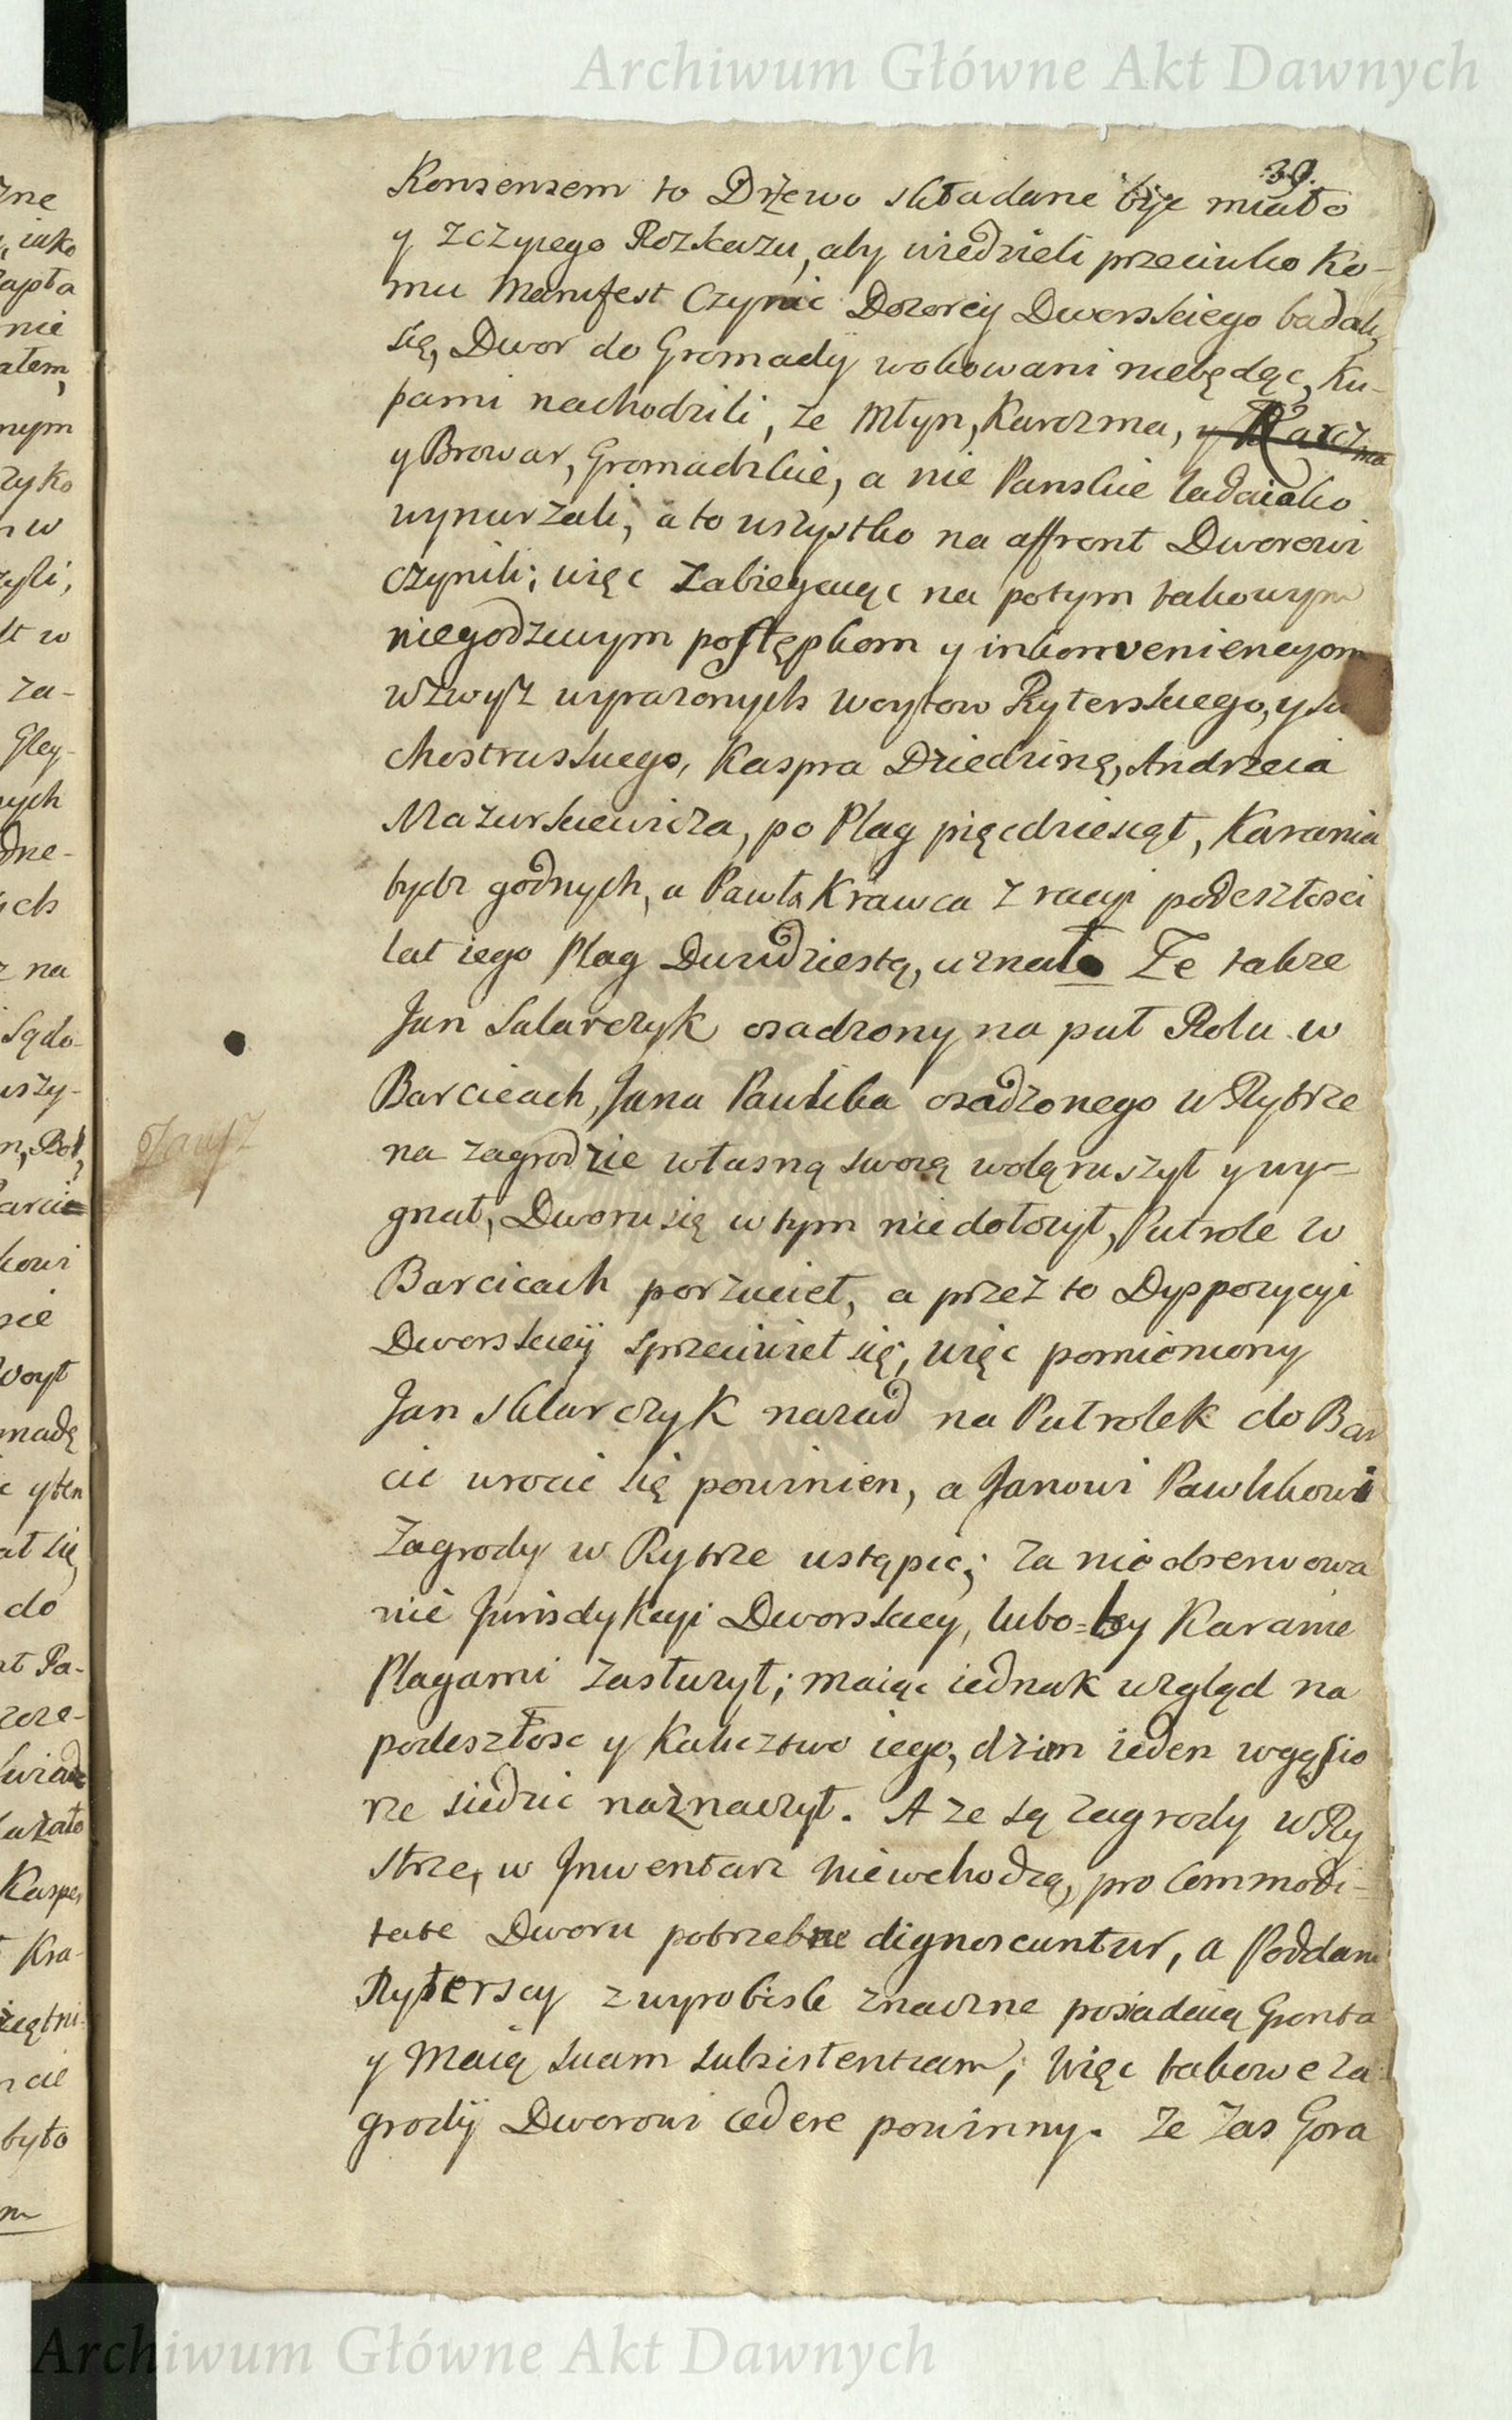 Archiwum Główne Akt Dawnych
39.
Konsensem to Drzewo składane być miało
y z czyiego Rozkazu, aby wiedzieli przeciwko Ko-
mu Manifest Czynic Dozorcij Dworskiego badali
się, Dwor do Gromadÿ wokowani niebędąc, Ku-
pami nachodzili, ze Młyn, Karczma, y Karczma
y Browar, Gromadzkie, a nie Panskie ladaiako
wynurzali; a to wszystko na affront Dworowi
czynili; więc Zabiegaiąc na potym takowym
niegodziwym postępkom y inkonveniencyom
wzwysz wyrazonych Woytow Ryterskiego, y Su
chostruskiego, Kaspra Dziedzinę, Andrzeia
Mazurkiewicza, po Plag pięcdziesiąt, Karania
bydz godnych, a Pawła Krawca z racyi podeszłosci
lat iego Plag Dwudziestą, uznało Ze takze
Jan Sklarczyk osadzony na puł Rolu w
Barcicach, Jana Pawlika osadzonego w Rytrze
na zagrodzie własną swoią wolą ruszył y wy-
gnał, Dworu się w tym nie dołozył, Pułrole w
Barcicach porzucieł, a przez to Dyspozycyi
Dworskieÿ sprzeciwieł się, więc pomieniony
Jan Sklarczyk nazad na Pułrolek do Bar
cic wrocic się powinien, a Janowi Pawlikowi
Zagrody w Rytrze ustąpic; Za nieobserwowa
nie Jurisdykcyi Dworskiey, lubo=by Karanie
Plagami zasłuzył; maiąc iednak wzgląd na
podeszłosc y Kalictwo iego, dzien ieden w gąsio
rze siedziec naznaczył. A ze są Zagrody w Ry
strze, w Jnwentarz niewchodzą, pro Commodi-
tate Dworu potrzebne dignoscuntur, a Poddani
Ryterscy z wyrobisk znaczne posiadaią Gronta
y Maią suam subsistentiam; Więc takowe Za
grodÿ Dworowi cedere powinny. Ze Zas Gora
Archiwum Główne Akt Dawnych